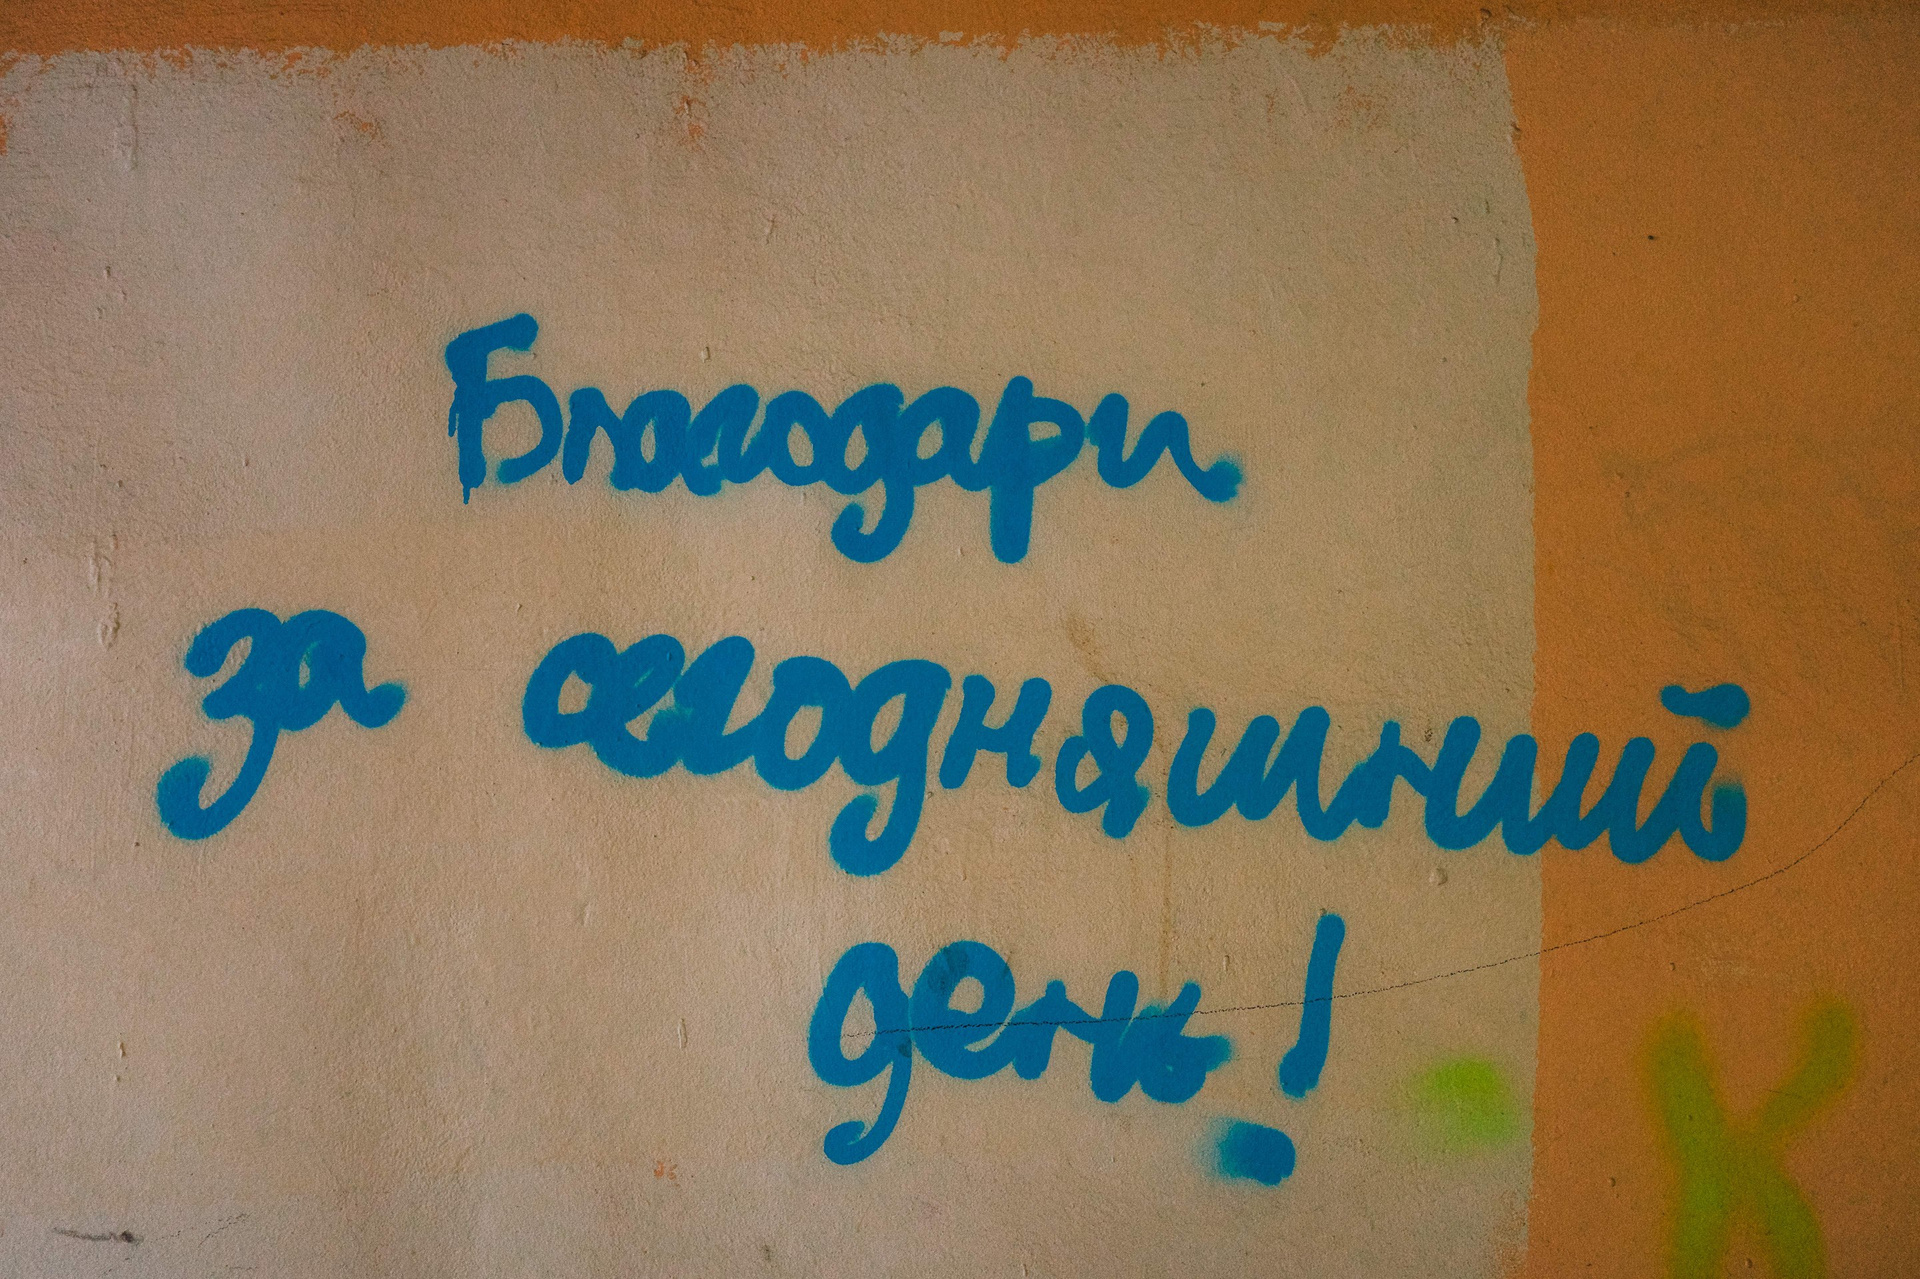 Благодари
за сегодняшний
день!